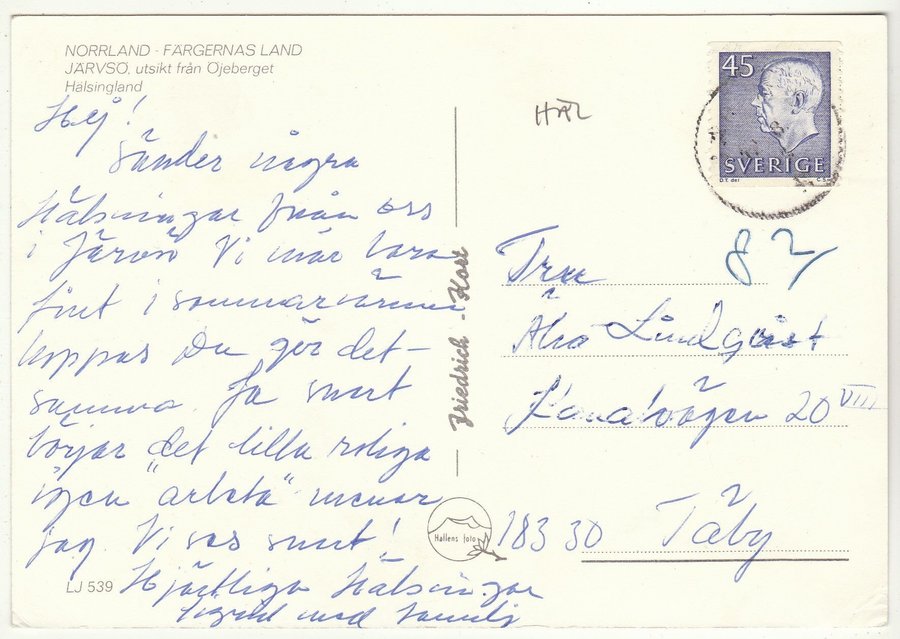 NORRLAND - FÄRGERNAS LAND
JÄRVSÖ, utsikt från Öjeberget
Hälsingland
Hej!
Sänder några
Hälsningar från oss
i Järvsö Vi mår bara
fint i sommarvärmen
hoppas Du gör det-
samma. Ja snart
börjar det lilla roliga
igen "arbeta" menar
jag. Vi ses snart!
Hjärtliga Hälsningar
Sigrid med familj
LJ 539
Friedrich-Kort
Hallens foto
HÄL
45
SVERIGE
82
Fru
Lindqvist
Kanalvägen 20 VIII
183 30 Täby